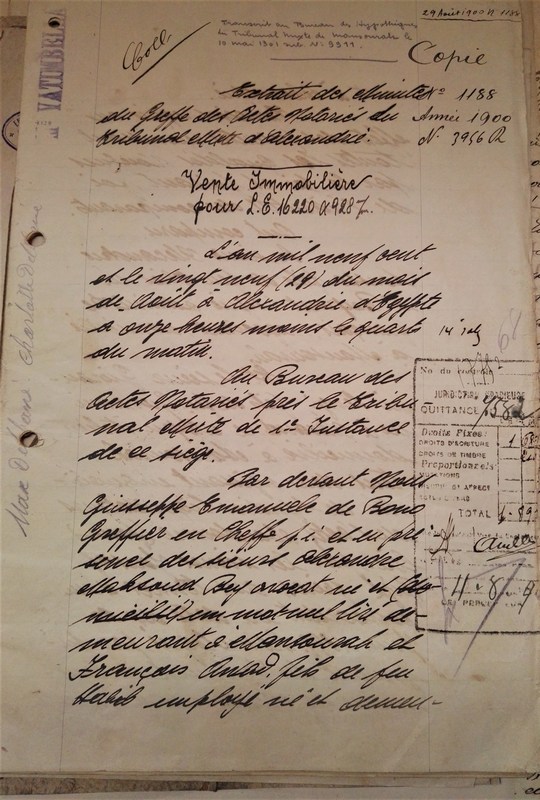 29 Août 1900 N. 1188
Coll.
Transmis au Bureau des Hypothèques
du Tribunal Mixte de Mansourah le
10 mai 1901 sub. N: 9911
Copie
Extrait des Minutes
du Greffe des Actes Notariés du
Tribunal Mixte d'Alexandrie.
No 1188
Année 1900
N. 3956 R
Vente Immobilière
pour L.E. 16220 & 928
L'an mil neuf cent
et le vingt neuf (29) du mois
de Août à Alexandrie d'Egypte
à onze heures moins le quart
du matin.
Au Bureau des
Actes Notariés près le Tribu
nal Mixte de 1e Instance
de ce siège.
Par devant Nous
Giuseppe Emanuele de Bono
Greffier en Cheff p.i. et en pré
sence des sieurs Alexandre
Maksoud Bey avocat né et
immatriculé de
meurant à Mansourah et
François Awad, fils de feu
Habib employé né et demeu-
No du
QUITTANCE
Droits Fixes:
DROITS D'ECRITURE
DROITS DE TIMBRE
Proportionnels
TOTAL
Charlotte